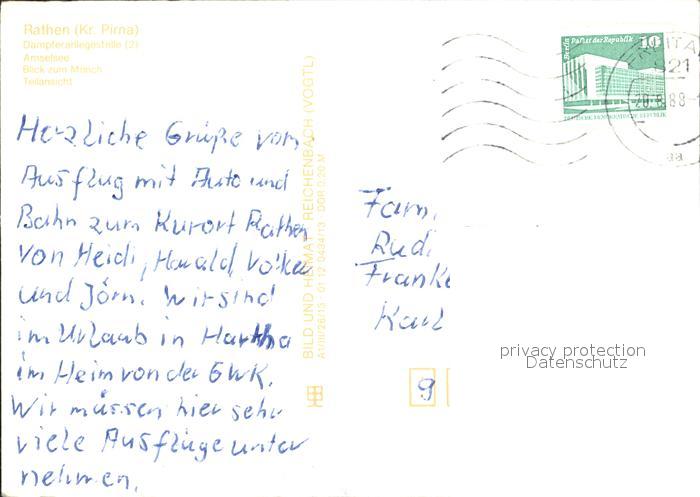 Rathen (Kr. Pirna)
Dampferanlegestelle (2)
Amselsee
Blick zum Mönch
Teilansicht
Herzliche Grüße vom
Ausflug mit Auto und
Bahn zum Kurort Rathen
von Heidi, Harald, Volker
und Jörn. Wir sind
im Urlaub in Hartha
im Heim von der GWK.
Wir müssen hier sehr
viele Ausflüge unter
nehmen.
BILD UND HEIMAT REICHENBACH (VOGTL)
A1/III/26/13 01 12 0434/13 DDR 0,20 M
Berlin Palast der Republik 10
DEUTSCHE DEMOKRATISCHE REPUBLIK
FREITAL
821
20.8.88
aa
Fam.
Rudi
Franke
Karl
9
privacy protection
Datenschutz